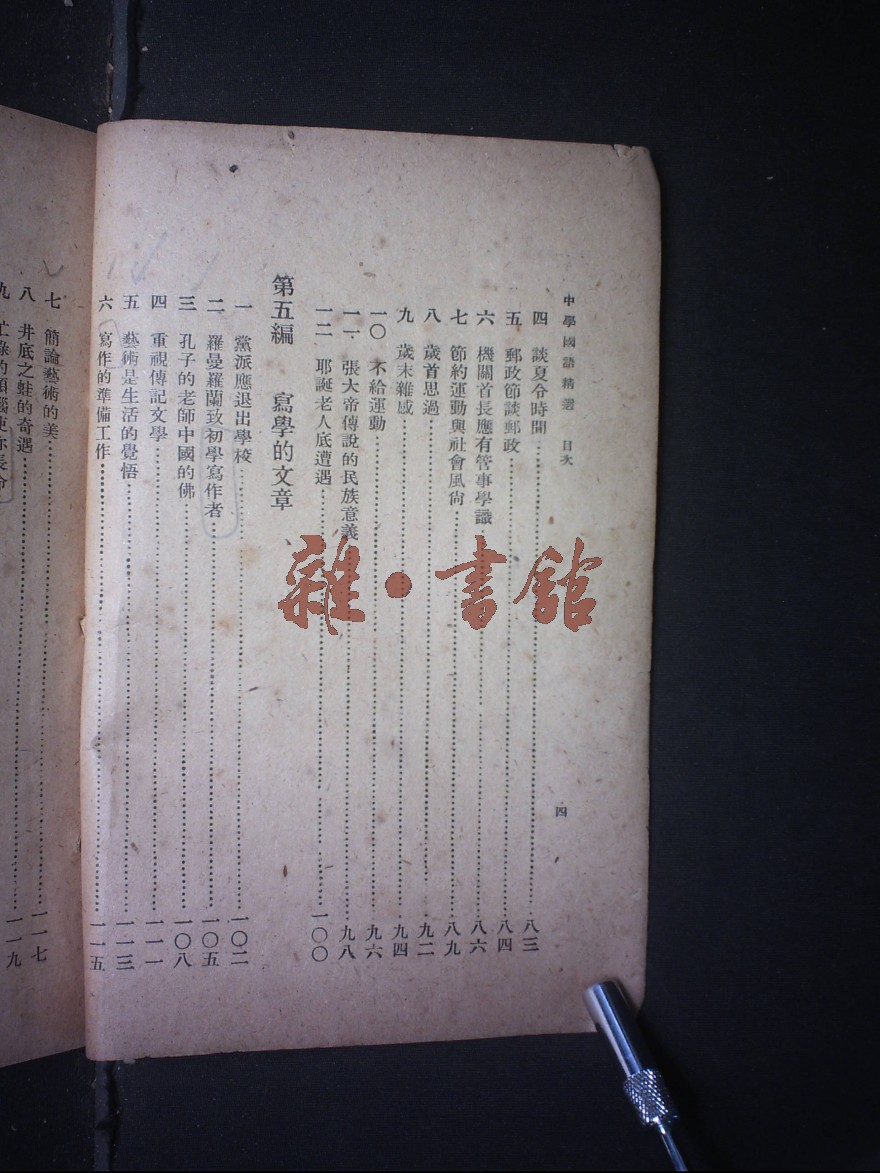 中學國語精選 目次 四
四 談夏令時間 八三
五 郵政節談郵政 八四
六 機關首長應有管事學識 八六
七 節約運動與社會風尙 八九
八 歲首思過 九二
九 歲末雜感 九四
一〇 不給運動 九六
一一 張大帝傳說的民族意義 九八
一二 耶誕老人底遭遇 一〇〇
第五編 寫學的文章
一 黨派應退出學校 一〇二
二 羅曼羅蘭致初學寫作者 一〇五
三 孔子的老師中國的佛 一〇八
四 重視傳記文學 一一一
五 藝術是生活的覺悟 一一三
六 寫作的準備工作 一一五
七 簡論藝術的美 一一七
八 井底之蛙的奇遇 一一九
九
雜·書館